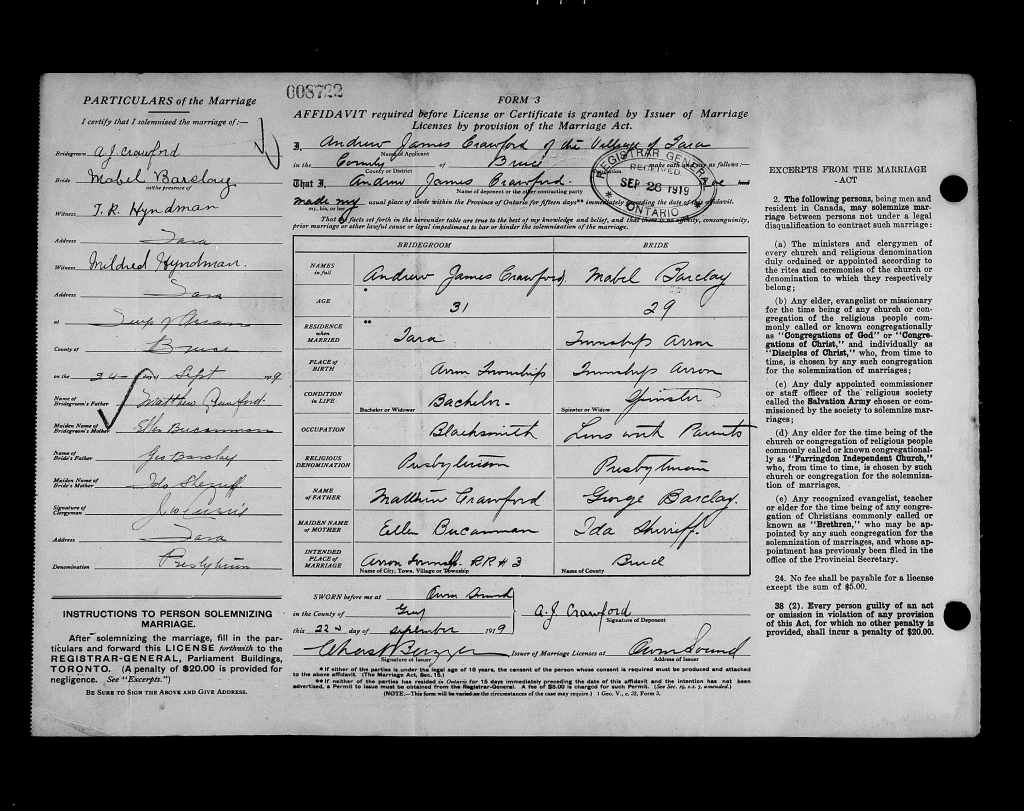 008722
PARTICULARS of the Marriage
I certify that I solemnised the marriage of:—
Bridegroom A J Crawford
Bride Mabel Barclay
in the presence of
Witness T. R. Hyndman
Address Tara
Witness Mildred Hyndman.
Address Tara
at Twp of Arran
County of Bruce
on the 24 day of Sept 1919
Name of Bridegroom's Father Matthew Crawford
Maiden Name of Bridegroom's Mother Ellen Bucannan
Name of Bride's Father Geo Barclay
Maiden Name of Bride's Mother Ida Sherriff
Signature of Clergyman
Address Tara
Denomination Presbyterian
INSTRUCTIONS TO PERSON SOLEMNIZING
MARRIAGE.
After solemnizing the marriage, fill in the par-
ticulars and forward this LICENSE forthwith to the
REGISTRAR-GENERAL, Parliament Buildings,
TORONTO. (A penalty of $20.00 is provided for
negligence. See "Excerpts.")
BE SURE TO SIGN THE ABOVE AND GIVE ADDRESS.
FORM 3
AFFIDAVIT required before License or Certificate is granted by Issuer of Marriage
Licenses by provision of the Marriage Act.
I, Andrew James Crawford of the Village of Tara
Name of Applicant
in the County of Bruce make oath and say as follows:—
County or District
That I, Andrew James Crawford.
Name of deponent or the other contracting party
REGISTRAR GENERAL
RECEIVED
SEP 26 1919
ONTARIO
made my usual place of abode within the Province of Ontario for fifteen days** immediately preceding the date of this affidavit.
my, his, or her
That the facts set forth in the hereunder table are true to the best of my knowledge and belief, and that there is no affinity, consanguinity,
prior marriage or other lawful cause or legal impediment to bar or hinder the solemnization of the marriage.
BRIDEGROOM BRIDE
NAMES in full Andrew James Crawford. Mabel Barclay
AGE * 31 29
RESIDENCE when MARRIED ** Tara Township Arran
PLACE OF BIRTH Arran Township Township Arran
CONDITION IN LIFE Bachelor Spinster
Bachelor or Widower Spinster or Widow
OCCUPATION Blacksmith Lives with Parents
RELIGIOUS DENOMINATION Presbyterian Presbyterian
NAME OF FATHER Matthew Crawford George Barclay.
MAIDEN NAME OF MOTHER Ellen Bucannan Ida Sherriff.
INTENDED PLACE OF MARRIAGE Arran Township RR#3 Bruce
Name of City, Town, Village or Township Name of County
SWORN before me at Owen Sound
in the County of Grey
this 22nd day of September 1919
A. J. Crawford
Signature of Deponent
Signature of Issuer
Issuer of Marriage Licenses at Owen Sound
Address of Issuer
* If either of the parties is under the legal age of 18 years, the consent of the person whose consent is required must be produced and attached
to the above affidavit. (The Marriage Act, Sec. 15.)
** If neither of the parties has resided in Ontario for 15 days immediately preceding the date of this affidavit and the intention has not been
advertised, a Permit to Issue must be obtained from the Registrar-General. A fee of $5.00 is charged for such Permit. (See Sec. 19, s.s. 7, amended.)
(NOTE.—This form will be varied as the circumstances of the case may require.) 1 Geo. V., c. 32, Form 3.
EXCERPTS FROM THE MARRIAGE
ACT
2. The following persons, being men and
resident in Canada, may solemnize mar-
riage between persons not under a legal
disqualification to contract such marriage:
(a) The ministers and clergymen of
every church and religious denomination
duly ordained or appointed according to
the rites and ceremonies of the church or
denomination to which they respectively
belong;
(b) Any elder, evangelist or missionary
for the time being of any church or con-
gregation of the religious people com-
monly called or known congregationally
as "Congregations of God" or "Congre-
gations of Christ," and individually as
"Disciples of Christ," who, from time to
time, is chosen by any such congregation
for the solemnization of marriages;
(c) Any duly appointed commissioner
or staff officer of the religious society
called the Salvation Army chosen or com-
missioned by the society to solemnize mar-
riages;
(d) Any elder for the time being of the
church or congregation of religious people
commonly called or known congregational-
ly as "Farringdon Independent Church,"
who, from time to time, is chosen by such
church or congregation for the solemniza-
tion of marriages.
(e) Any recognized evangelist, teacher
or elder for the time being of any congre-
gation of Christians commonly called or
known as "Brethren," who may be ap-
pointed by any such congregation for the
solemnization of marriages, and whose ap-
pointment has previously been filed in the
office of the Provincial Secretary.
24. No fee shall be payable for a license
except the sum of $5.00.
38 (2). Every person guilty of an act
or omission in violation of any provision
of this Act, for which no other penalty is
provided, shall incur a penalty of $20.00.